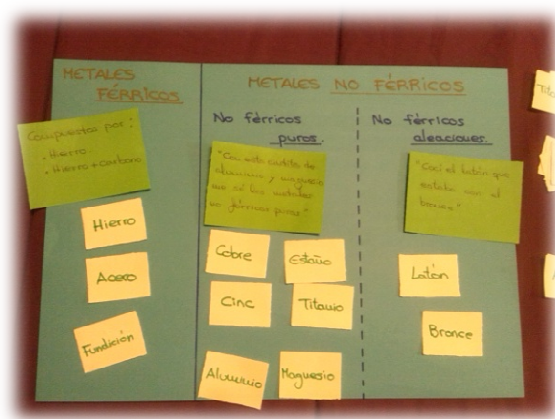 METALES
FÉRRICOS
Compuestos por:
· Hierro
· Hierro + Carbono
Hierro
Acero
Fundición
METALES NO FÉRRICOS
No férricos
puros.
"Con este
de
aluminio y magnesio
los metales
no férricos puros"
Cobre
Estaño
Cinc
Titanio
Aluminio
Magnesio
No férricos
aleaciones.
"Cogí el latón que
estaba con el
bronce"
Latón
Bronce